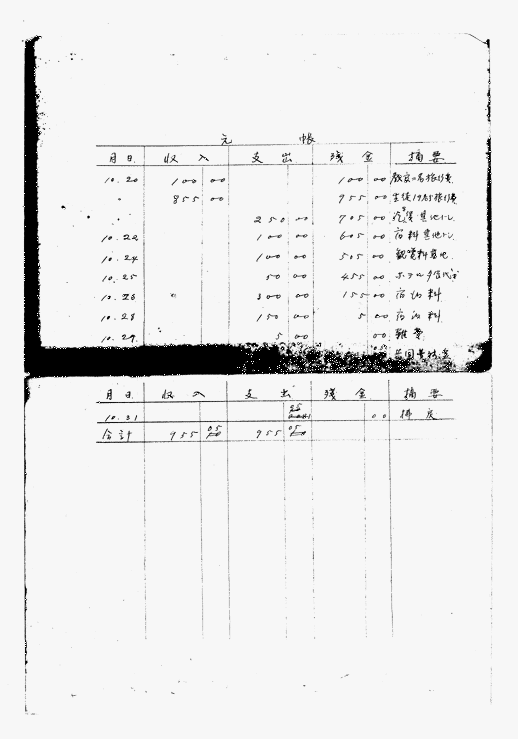 元 帳
月日 収入 支出 残金 摘要
10.20 100 00 100 00 教官一名旅行費
〃 855 00 955 00 生徒19名旅行費
〃 250 00 705 00 汽車賃其他
10.22 100 00 605 00 宿料其他
10.24 100 00 505 00 観覧料其他
10.25 50 00 455 00 ホテル夕食代
10.26 300 00 155 00 宿泊料
10.28 150 00 5 00 宿泊料
10.29 5 00 00 雑費
月日 収入 支出 残金 摘要
10.31 05 00 払戻
合計 955 05 955 05